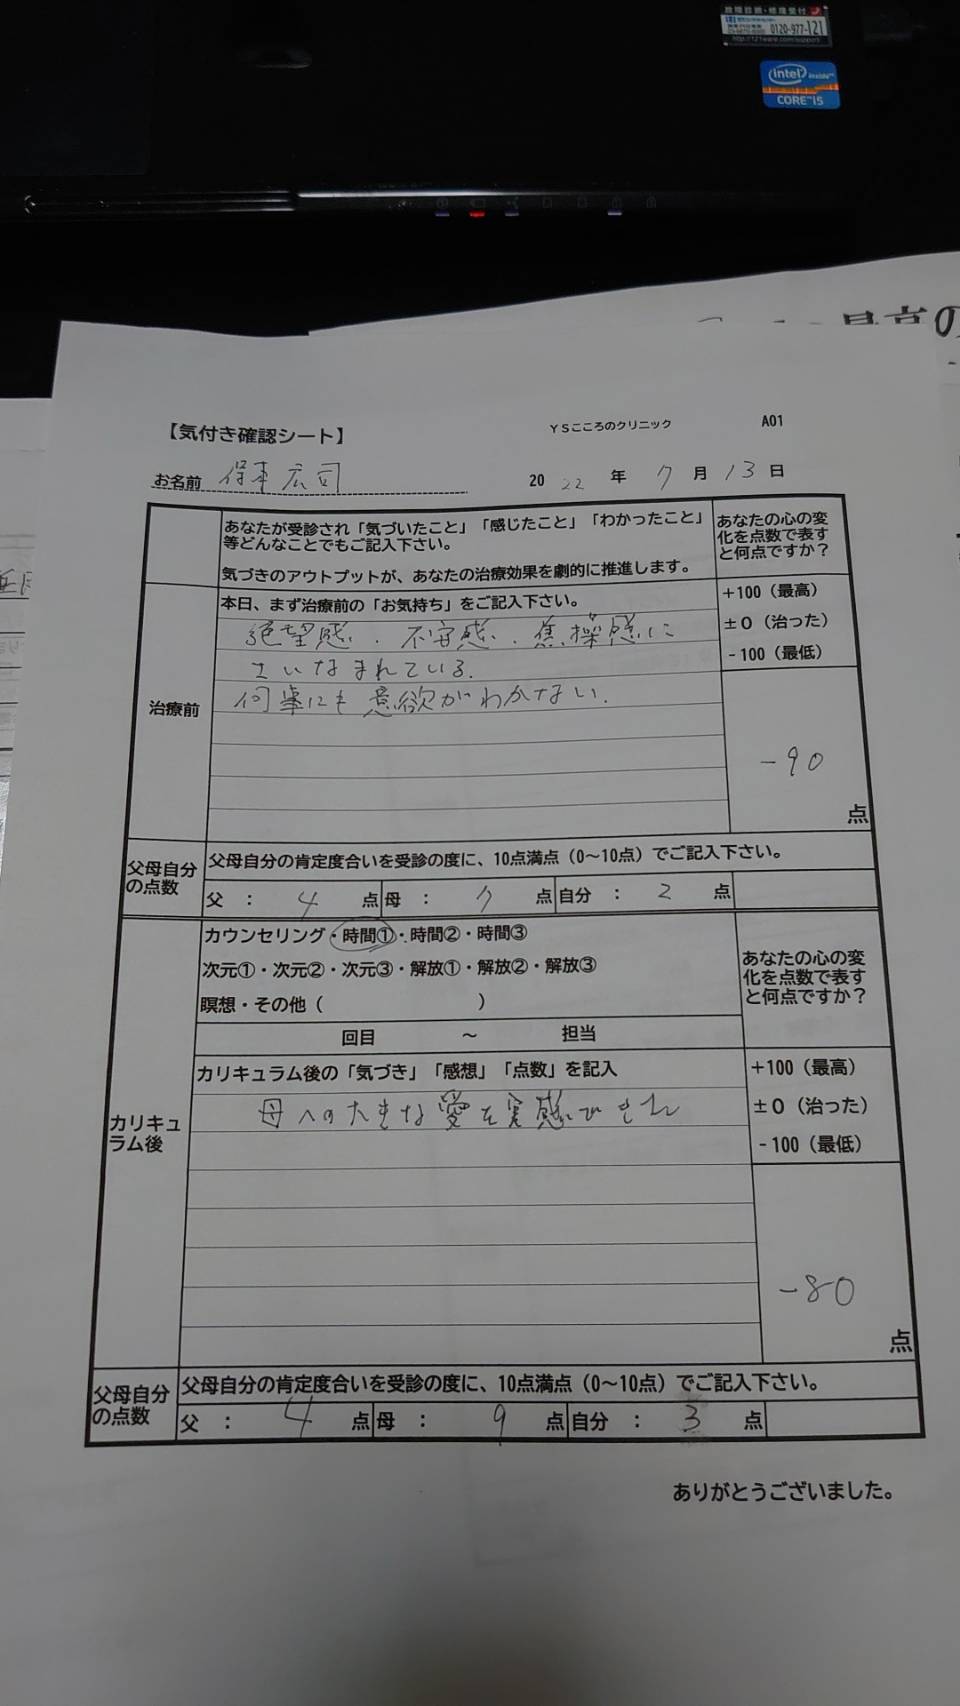 故障診断・修理受付
0120-977-121
http://121ware.com/support
intel inside™
CORE™i5
最高の
【気付き確認シート】
YSこころのクリニック
A01
お名前 保本 広司
2022年 7月 13日
あなたが受診され「気づいたこと」「感じたこと」「わかったこと」
等どんなことでもご記入下さい。
気づきのアウトプットが、あなたの治療効果を劇的に推進します。
あなたの心の変
化を点数で表す
と何点ですか？
治療前
本日、まず治療前の「お気持ち」をご記入下さい。
絶望感、不安感、焦燥感に
さいなまれている。
何事にも意欲がわかない。
+100（最高）
±0（治った）
-100（最低）
-90
点
父母自分
の点数
父母自分の肯定度合いを受診の度に、10点満点（0～10点）でご記入下さい。
父 ： 4 点 母 ： 7 点 自分 ： 2 点
カリキュ
ラム後
カウンセリング・時間①・時間②・時間③
次元①・次元②・次元③・解放①・解放②・解放③
瞑想・その他（ ）
回目 ～ 担当
あなたの心の変
化を点数で表す
と何点ですか？
カリキュラム後の「気づき」「感想」「点数」を記入
母への大きな愛を実感できた
+100（最高）
±0（治った）
-100（最低）
-80
点
父母自分
の点数
父母自分の肯定度合いを受診の度に、10点満点（0～10点）でご記入下さい。
父 ： 4 点 母 ： 9 点 自分 ： 3 点
ありがとうございました。